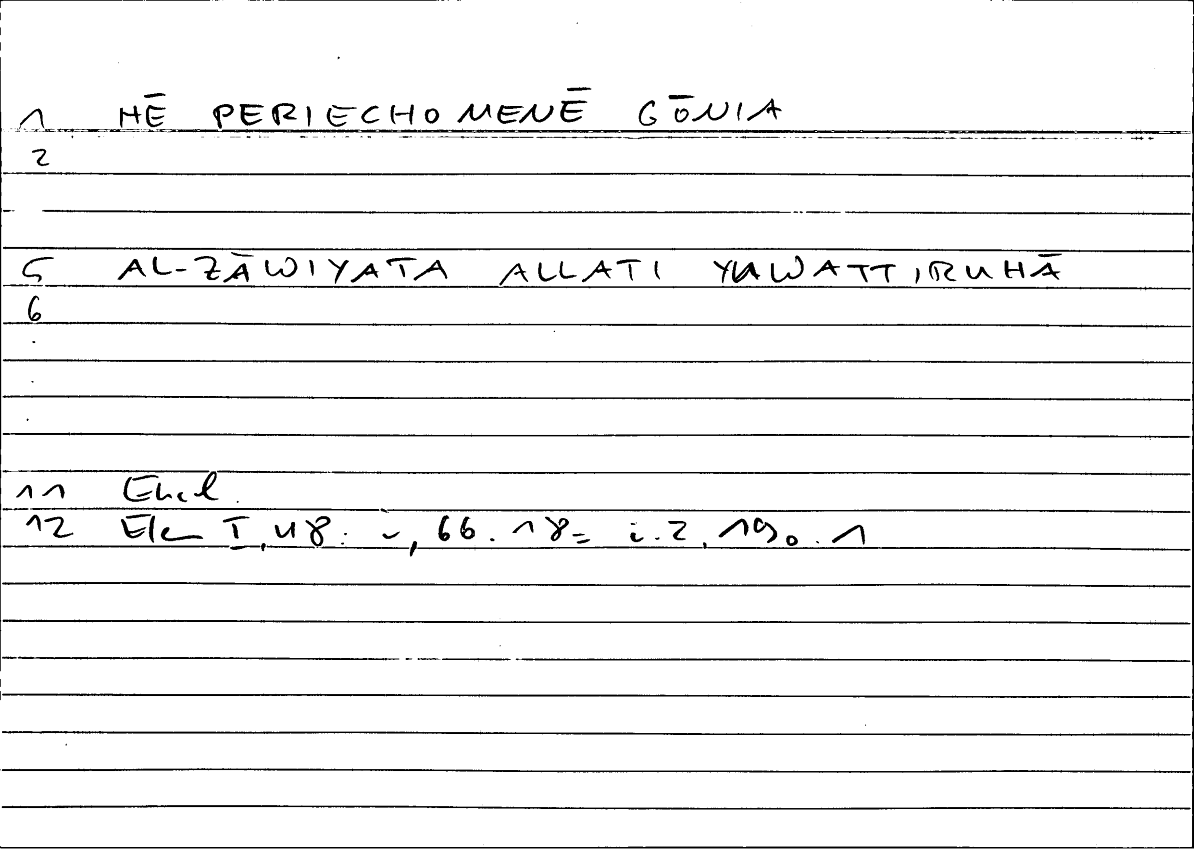 1 HĒ PERIECHOMENĒ GŌNIA
2
5 AL-ZĀWIYATA ALLATI YUWATTIRUHĀ
6
.
.
.
11 Eucl.
12 Elem I, 48: 66. 18 = i.2, 190. 1